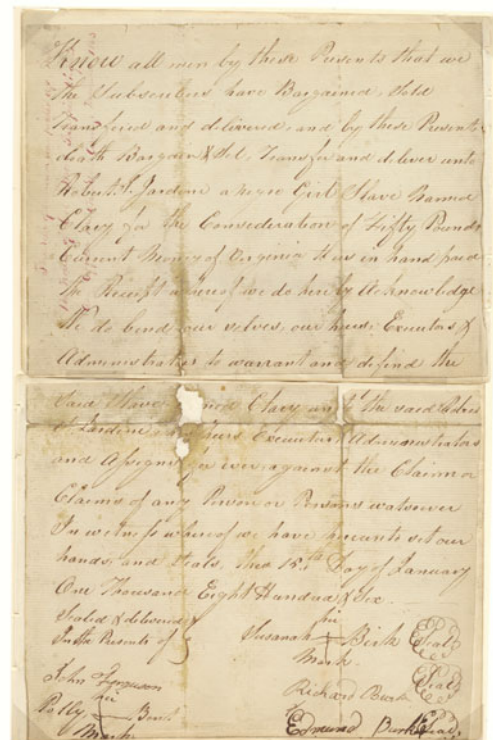 Know all men by these Presents that we
the Subscribers have Bargained, Sold
Transfered and delivered, and by these Presents
doath Bargain & Sel, Transfer and deliver unto
Robert S. Jardine a negro Girl Slave Named
Clary for the Consideration of Fifty Pounds
Current Money of Virginia thus in hand paid
The Receipt whereof we do hereby Acknowledge
We do bend our selves, our heirs Executors &
Administrators to warrant and defind the
Said Slave Clary unt the said Robert
S. Jardine heirs Executors Administrators
and Assigns for ever against the Claim or
Claims of any Person or Persons watsoever
In witness whereof we have hereunto set our
hands, and Seals, this 15th Day of January
One Thousand Eight Hundred & Six.
Sealed & delivered
In the Presents of
Susanah her Mark Birk Seal
John Ferguson
Richard Burk Seal
Polly her Mark
Edmund Burk Seal